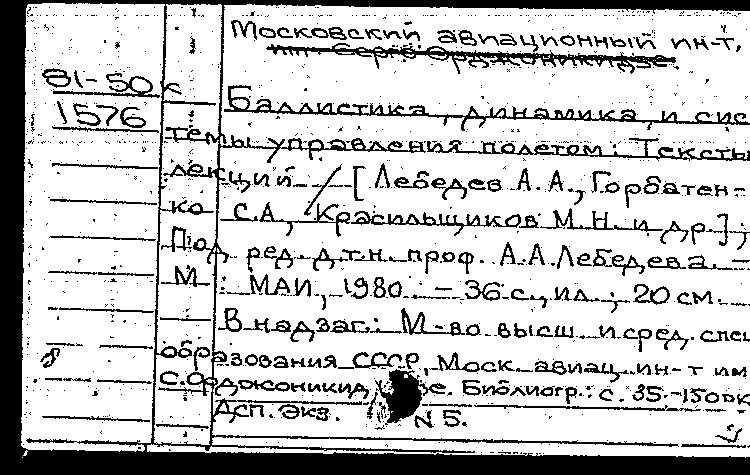 Московский авиационный ин-т,
им. Серго Орджоникидзе.
81-50к
1576
Баллистика, динамика и сис
темы управления полетом: Тексты
лекций / [Лебедев А.А., Горбатен-
ко С.А., Красильщиков М.Н. и др];
Под ред. д.т.н. проф. А.А.Лебедева. –
М: МАИ, 1980. – 36 с., ил.; 20 см.
В надзаг.: М-во высш и сред. спец
образования СССР, Моск. авиац. ин-т им
С.Орджоникид Библиогр.: с. 35.-150экз
Дсп. экз. N 5.